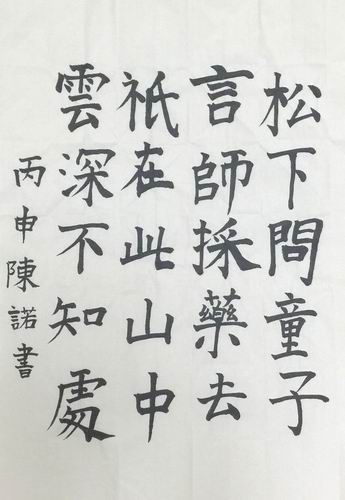 松下問童子
言師採藥去
祇在此山中
雲深不知處
丙申陳諾書